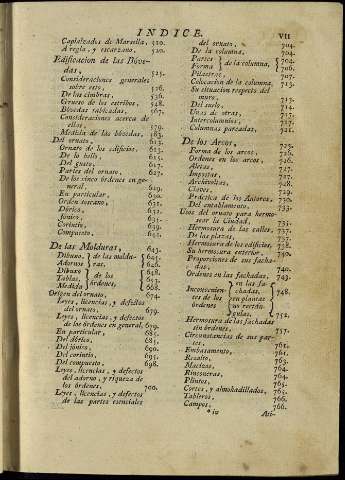 INDICE.
VII
Capialzados de Marsella, 520.
A regla, y escarzano. 520.
Edificacion de las Bóvedas, 525.
Consideraciones generales
sobre esto, 526.
De las cimbras, 536.
Grueso de los estribos, 548.
Bóvedas tabicadas, 567.
Consideraciones acerca de
ellas, 579.
Medida de las bóvedas, 583.
Del ornato, 613.
Ornato de los edificios, 613.
De lo bello, 615.
Del gusto, 617.
Partes del ornato, 627.
De los cinco órdenes en general, 629.
En particular, 630.
Orden toscano, 631.
Dórico, 632.
Jónico, 635.
Corintio, 639.
Compuesto, 642.
De las Molduras, 643.
Dibuxo, de las molduras, 645.
Adornos 646.
Dibuxo 648.
Tablas, de los órdenes, 653.
Medida 668.
Origen del ornato, 674.
Leyes, licencias, y defectos
del ornato, 679.
Leyes, licencias, y defectos
de los órdenes en general, 679.
En particular, 685.
Del dórico, 685.
Del jónico, 690.
Del corintio, 695.
Del compuesto, 698.
Leyes, licencias, y defectos
del adorno, y riqueza de
los órdenes, 700.
Leyes, licencias, y defectos
de las partes esenciales
del ornato, 704.
De la columna, 704.
Partes de la columna, 704.
Forma 706.
Pilastras,
Colocacion de la columna, 713.
Su situacion respecto del
muro,
Del suelo, 714.
Unas de otras, 717.
Intercolumnios, 717.
Columnas pareadas, 721.
De los Arcos, 725.
Forma de los arcos, 725.
Ordenes en los arcos, 726.
Aletas, 727.
Impostas, 728.
Archivoltas, 728.
Claves, 729.
Práctica de los Autores, 730.
Del entablamento, 733.
Usos del ornato para hermosear la Ciudad, 731.
Hermosura de las calles, 737.
De las plazas, 737.
Hermosura de los edificios, 738.
Su hermosura exterior, 740.
Proporciones de sus fachadas, 740.
Ordenes en las fachadas, 743.
Inconvenientes de los órdenes
en las fachadas, 748.
en plantas no rectángulas, 752.
Hermosura de las fachadas
sin órdenes, 757.
Circunstancias de sus partes,
Embasamento, 761.
Resalto, 763.
Macizos, 764.
Rinconeras, 764.
Plintos, 764.
Cortes, y almohadillados, 765.
Tableros, 765.
Campos, 766.